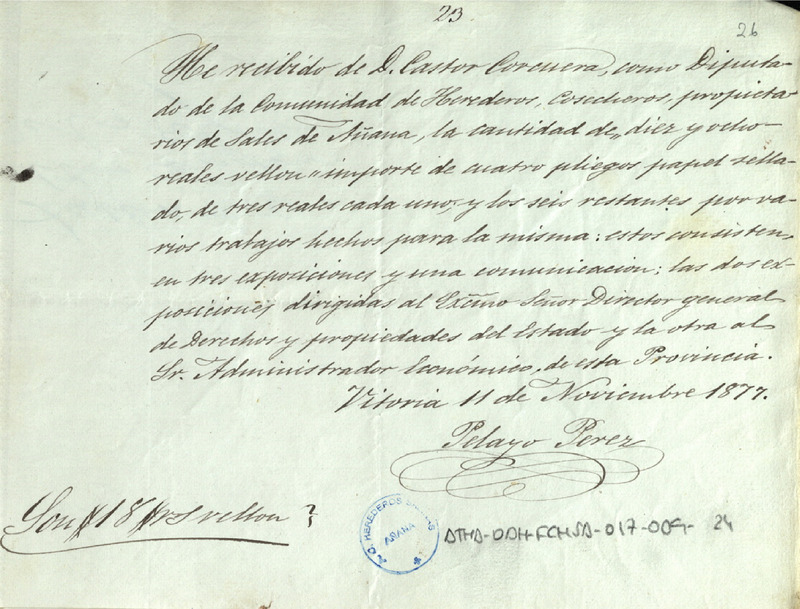 23
26
He recibido de D. Castor Corcuera, como Diputa-
do de la Comunidad de Herederos, Cosecheros, propieta
rios de Sales de Añana, la cantidad de „ diez y ocho
reales vellon „ importe de cuatro pliegos papel sella-
do, de tres reales cada uno, y los seis restantes por va-
rios trabajos hechos para la misma: estos consisten,
en tres exposiciones y una comunicacion: las dos ex-
posiciones dirigidas al Excmo Señor Director general
de Derechos y propiedades del Estado y la otra al
Sr. Administrador Económico, de esta Provincia.
Vitoria 11 de Noviembre 1877.
Pelayo Perez
Son #18# rs vellon
HEREDEROS
AÑANA
ATHA-DAH-FCHSA-017-009-24